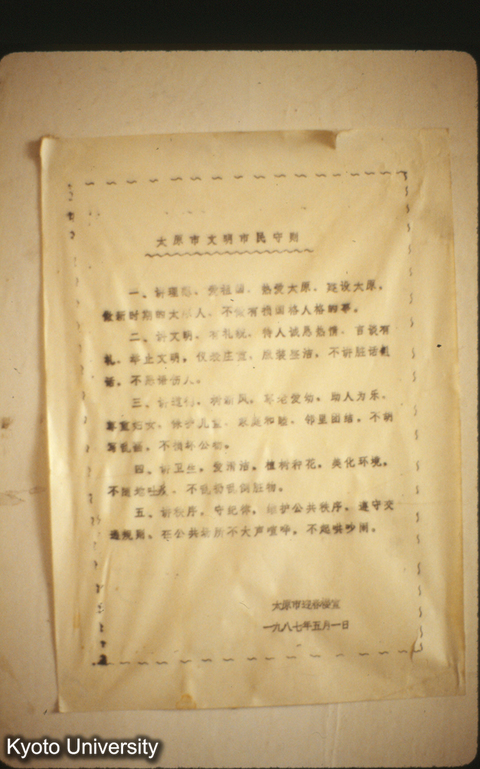 太原市文明市民守则
一、讲理想，爱祖国，热爱太原，建设太原，
做新时期的太原人，不做有损国格人格的事。
二、讲文明，有礼貌，待人诚恳热情，言谈有
礼，举止文明，仪表庄重，服装整洁，不讲脏话粗
话，不恶语伤人。
三、讲道德，树新风，尊老爱幼，助人为乐，
尊重妇女，保护儿童，家庭和睦，邻里团结，不胡
写乱画，不损坏公物。
四、讲卫生，爱清洁，植树种花，美化环境，
不随地吐痰，不乱扔乱倒脏物。
五、讲秩序，守纪律，维护公共秩序，遵守交
通规则，在公共场所不大声喧哗，不起哄吵闹。
太原市迎春楼宣
一九八七年五月一日
Kyoto University